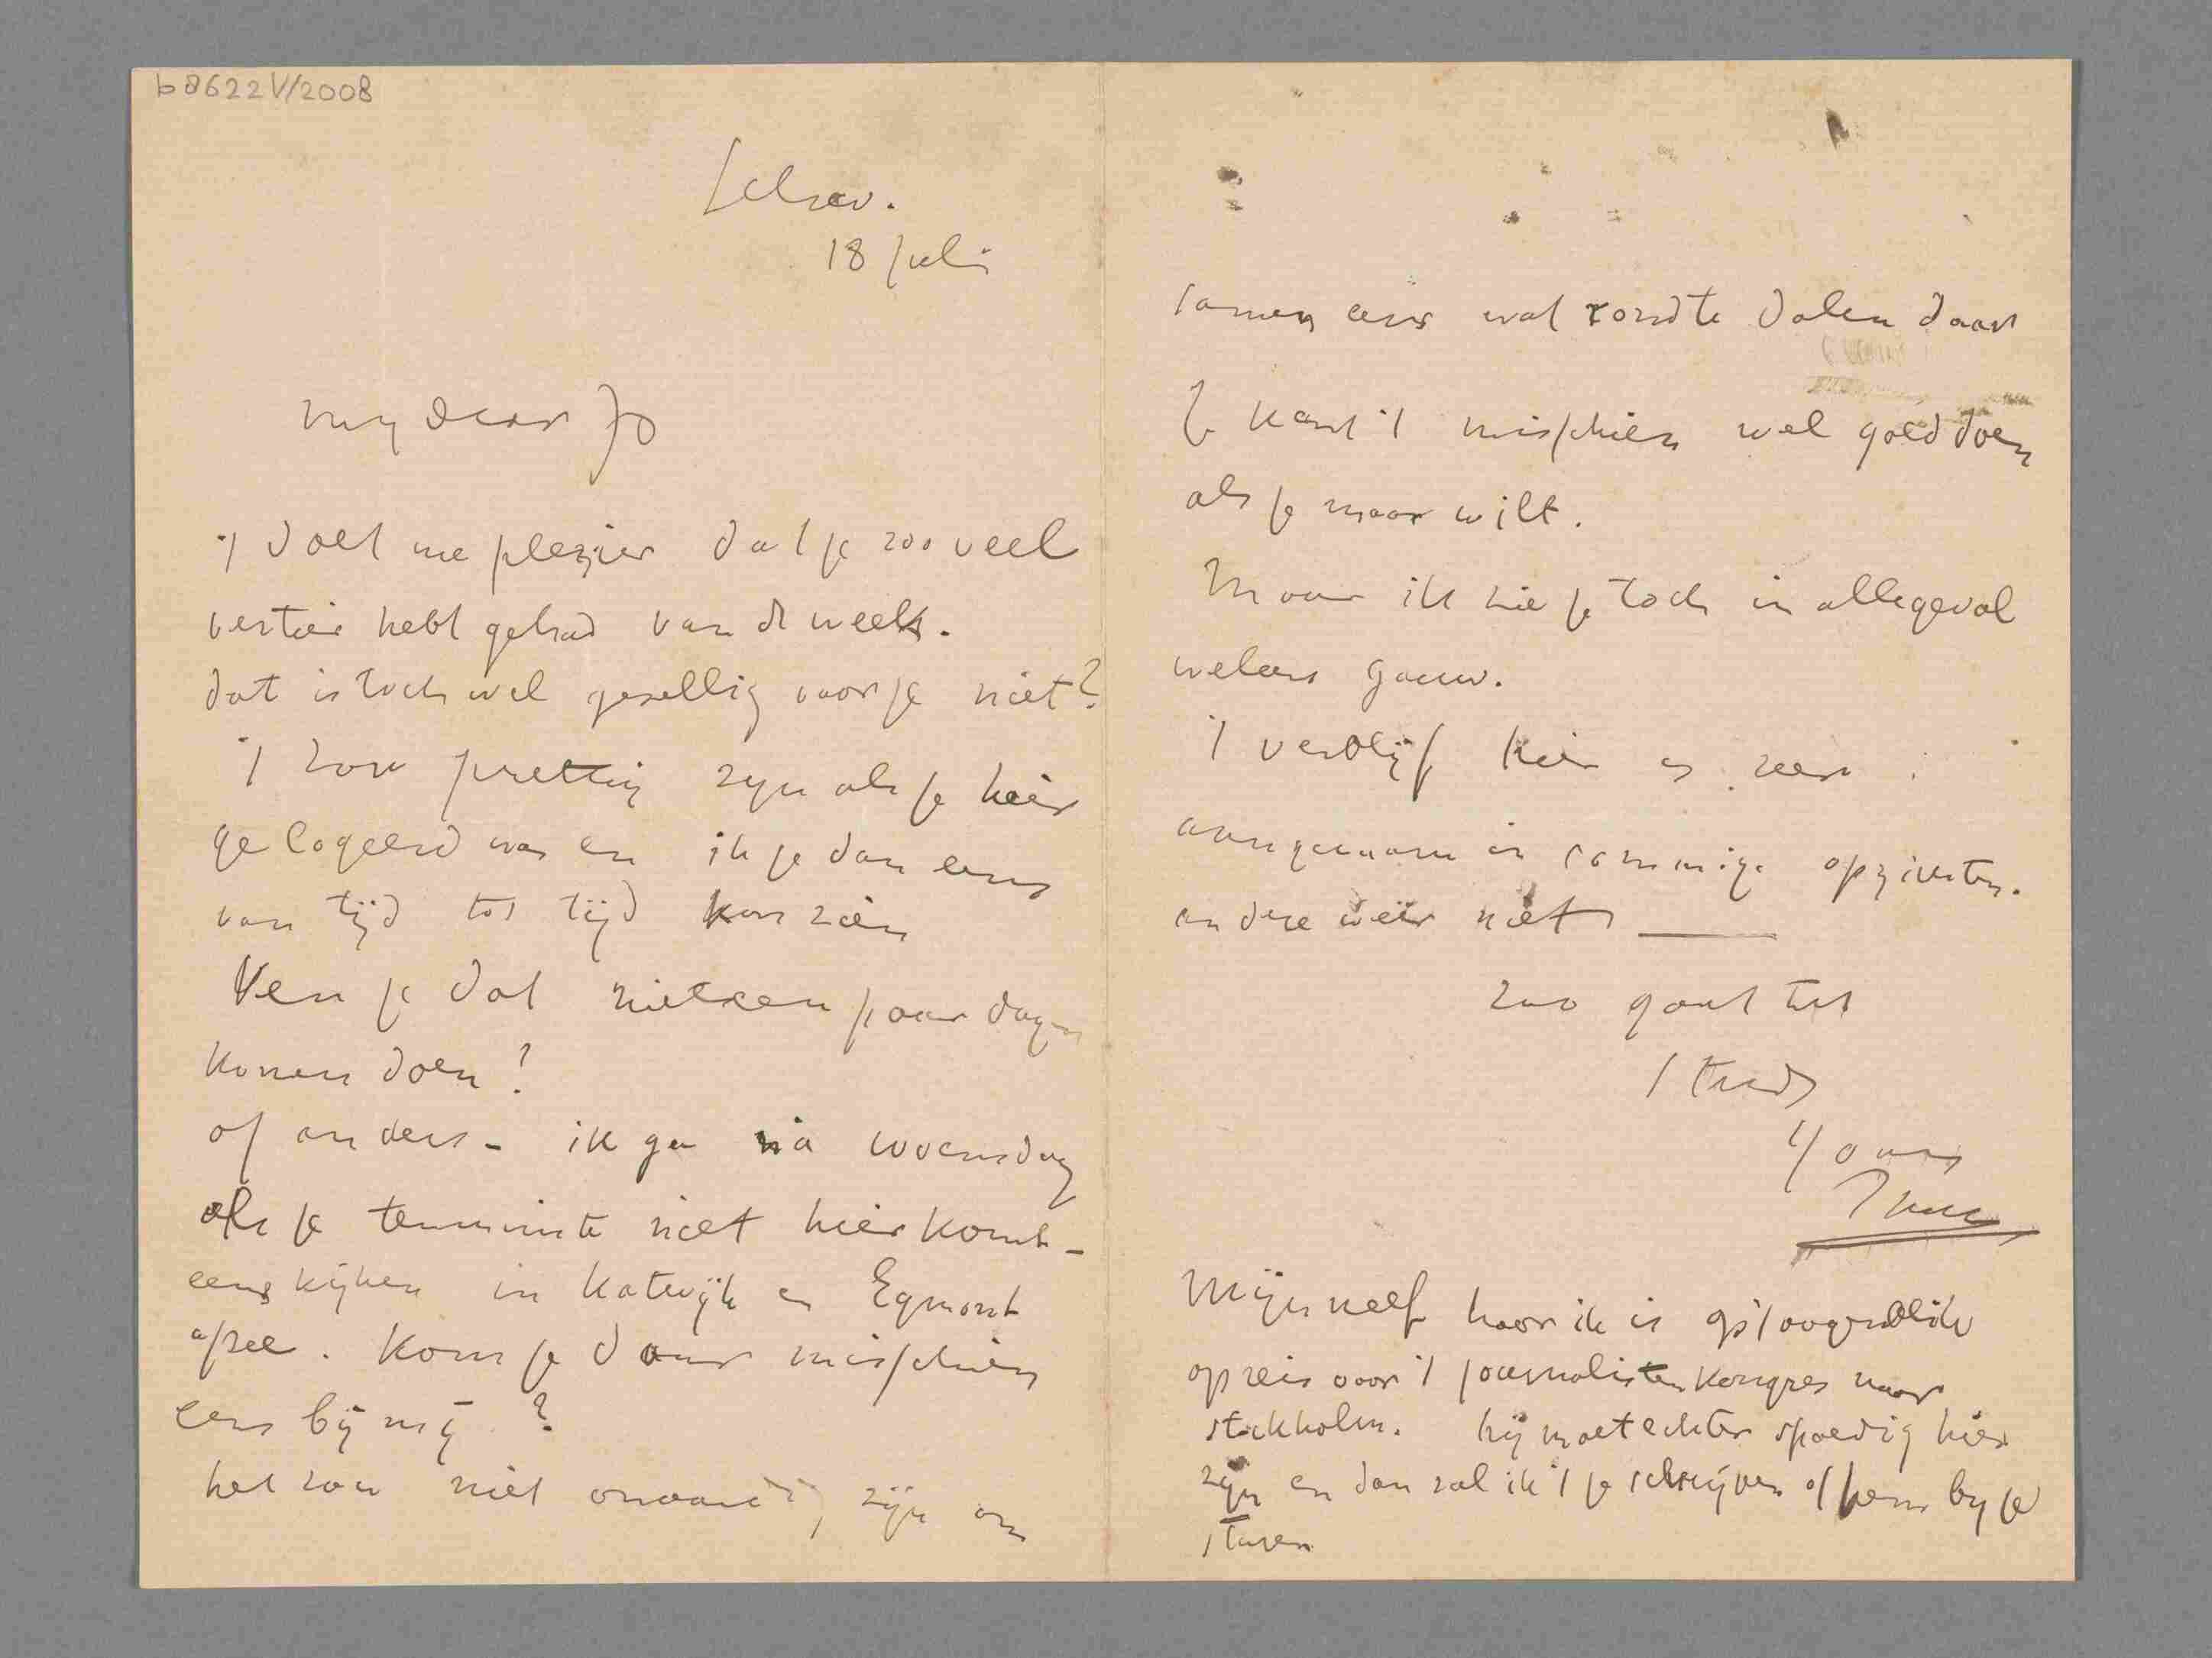 b8622V/2008
Schev.
18 Juli
my dear Jo
't doet me plezier dat je zoo veel
vertier hebt gehad van de week.
dat is toch wel gezellig voor je niet?
't zou prettig zyn als je hier
gelogeerd was en ik je dan eens
van tijd tot tijd kon zien
Ken je dat niet een paar dagen
konen doen?
of anders - ik ga na woensdag
als je tenminste niet hier komt -
eens kijken in Katwijk en Egmont
a/zee. Kom je daar misschien
eens bij mij ?
het zou niet onaardig zijn om
samen eens wat rond te dolen daar
Je kant 't misschien wel goed doen
als je maar wilt.
Maar ik zie je toch in allegeval
weleens gauw.
't verblijf hier is zeer
aangenaam in sommige opzichten.
andere weer niet
zoo gaat het
steeds
Yours
Mijn neef hoor ik is op 't oogenblik
op reis voor 't journalisten kongres naar
stokholm. hij moet echter spoedig hier
zijn en dan zal ik 't je schrijven of hem by je
sturen